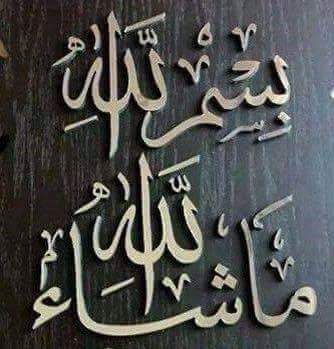 بِسْمِ اللَّهِ
مَا شَاءَ اللَّه